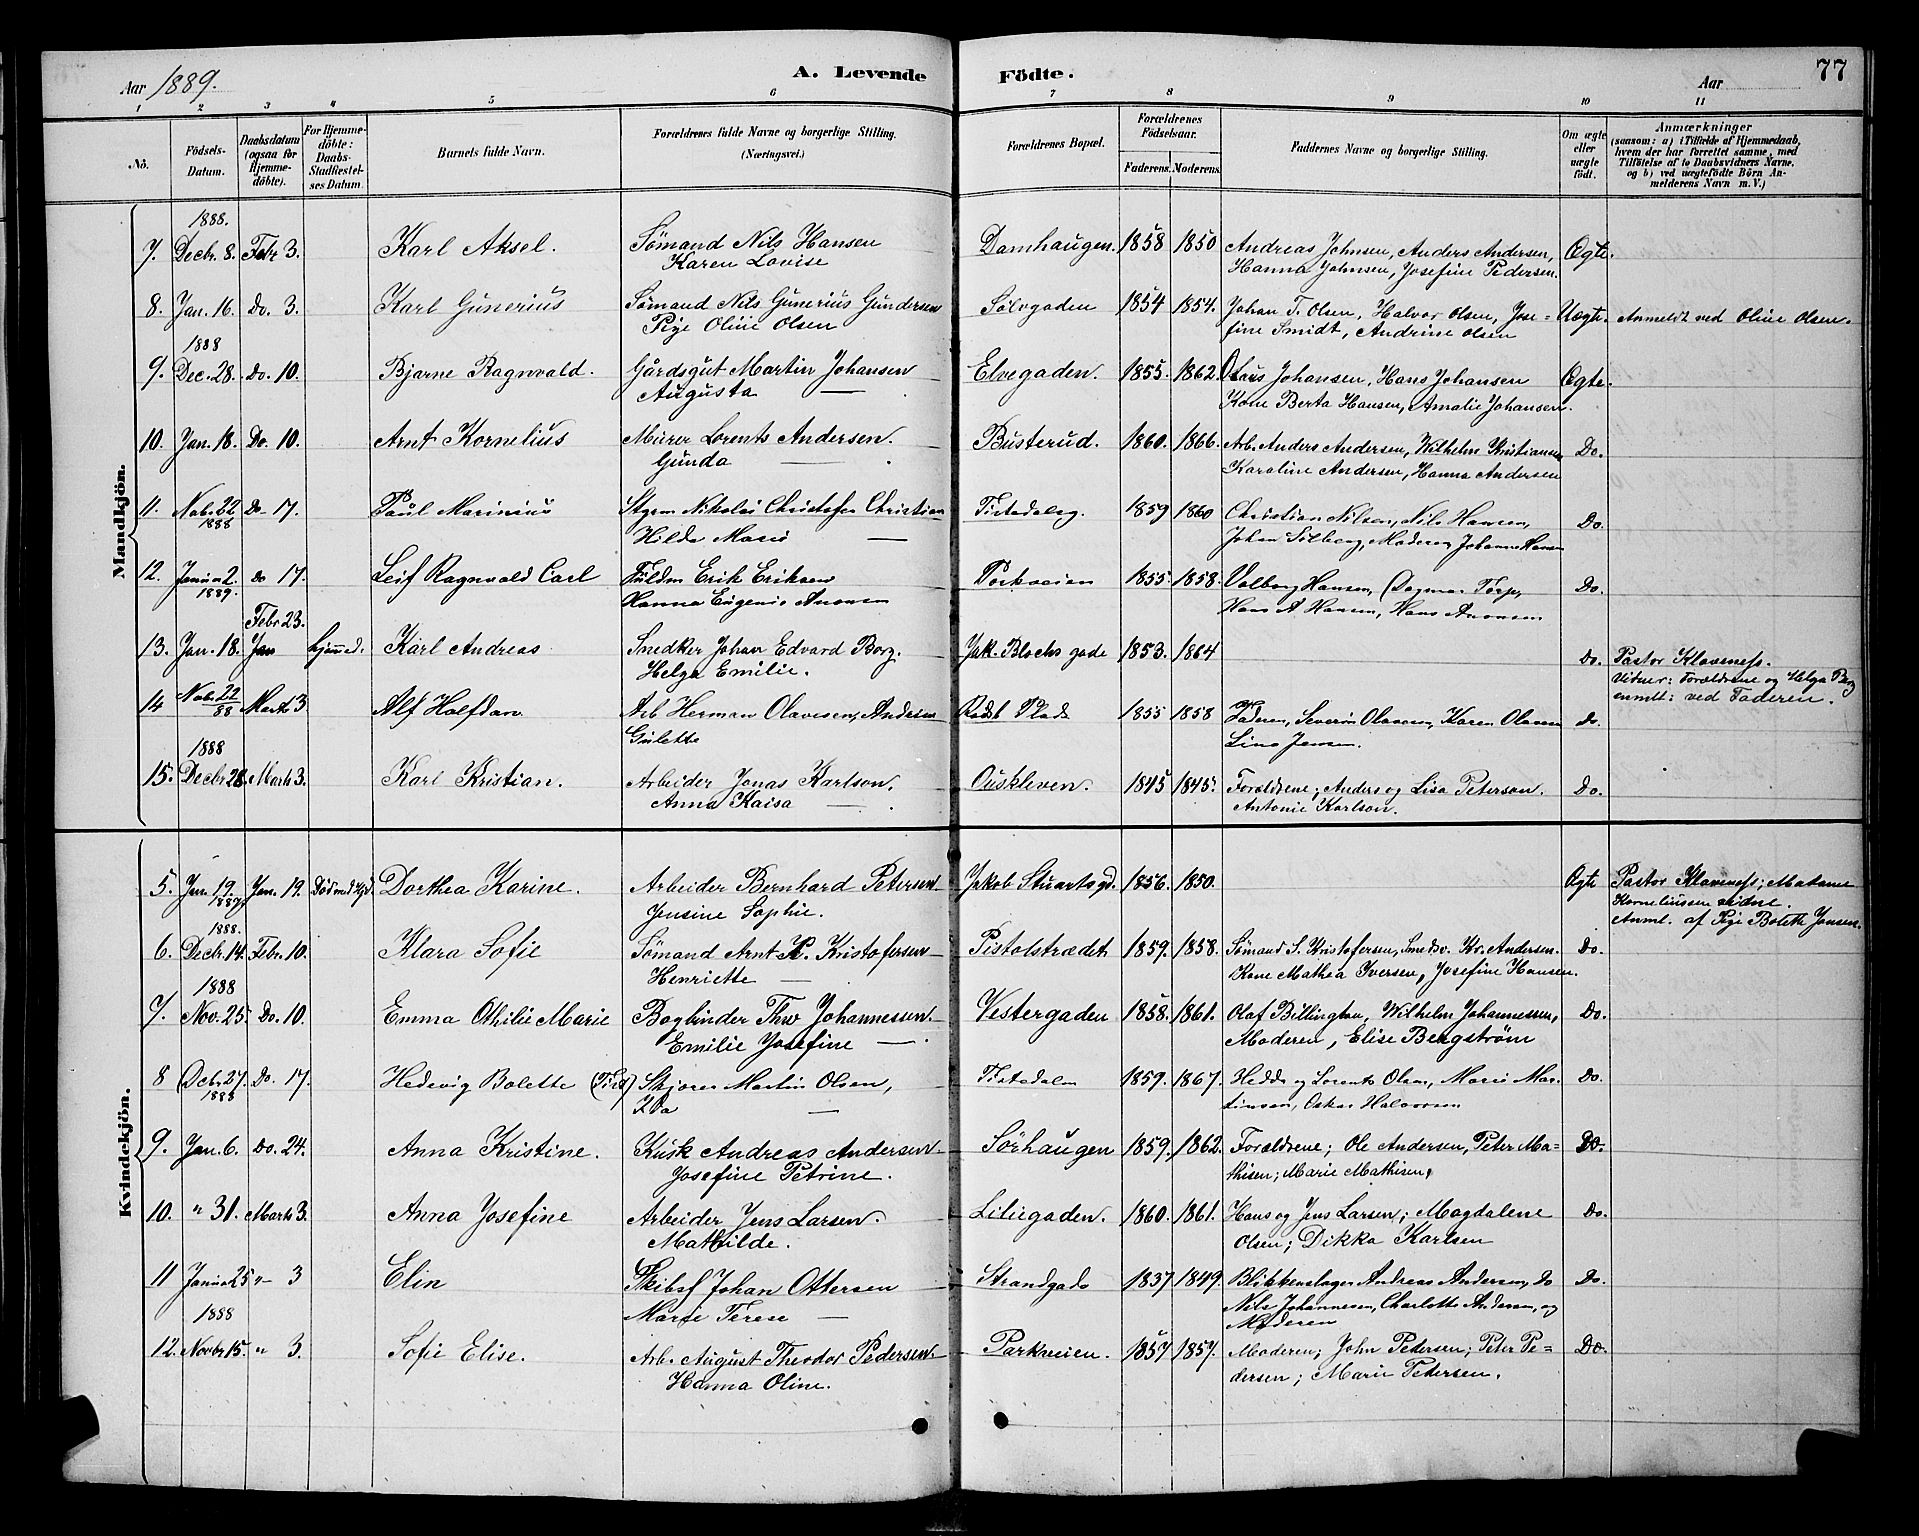 Aar 1889.
A. Levende Födte.
Aar
77
1 2 3 4 5 6 7 8 9 10 11
Nö.
Födsels-Datum.
Daabsdatum (ogsaa for Hjemme-döbte).
For Hjemme-döbte: Daabs-Stadfæstel-ses Datum.
Barnets fulde Navn.
Forældrenes fulde Navne og borgerlige Stilling. (Næringsvei.)
Forældrenes Bopæl.
Forældrenes Födselsaar.
Faderens. Moderens.
Faddernes Navne og borgerlige Stilling.
Om ægte eller uægte födt.
Anmærkninger
(saasom: a) i Tilfælde af Hjemmedaab, hvem der har forrettet samme, med Tilföielse af to Daabsvidners Navne, og b) ved uægtefödte Börn An-melderens Navn m. V.)
Mandkjön.
1888.
7. Decbr. 8. Febr 3. Karl Aksel. Sømand Nils Hansen Damhaugen. 1858 1850 Andreas Johnsen, Anders Andersen, Ægte.
Karen Lovise Hanna Johnsen, Josefine Pedersen.
8. Jan. 16. Do. 3. Karl Gunerius Sømand Nils Gunerius Gundersen Sølvgaden 1854 1854. Johan T. Olsen, Halvor Olsen, Jose= Uægte. Anmeldt ved Oline Olsen.
Pige Oline Olsen fine Smidt, Andrine Olsen
1888
9. Dec. 28. Do. 10. Bjarne Ragnvald. Gårdsgut Martin Johansen Elvegaden. 1855. 1862. Olaus Johansen, Hans Johansen Ægte.
Augusta — Kone Berta Hansen, Amalie Johansen.
10. Jan. 18. Do. 10. Arnt Kornelius Murer Lorents Andersen. Busterud. 1860. 1866. Arb. Anders Andersen, Wilhelm Kristiansen Do.
Gunda — Karoline Andersen, Hanna Andersen
11. Nobr 22 Do 17. Paul Marinius Stgrm Nikolai Christofer Christian Tistedalsg. 1859 1860 Christian Nilsen, Nils Hansen, Do.
1888 Hilda Marie — Johan Solberg, Moderen, Johanne Hansen
12. Januar 2. Do 17. Leif Ragnvald Carl Fuldm Erik Eriksen Parkveien 1855. 1858. Valborg Hansen, Dagmar Torp, Do.
1889. Hanna Eugenie Aronsen Hans A Hansen, Hans Aronsen
Febr 23.
13. Jan. 18. Jan hjemmed. Karl Andreas Snedker Johan Edvard Borg. Jak. Blochs gade 1853. 1864 Do. Pastor Klaveness.
Helga Emilie. Vidner: Forældrene og Helga Borg
anmlt: ved Faderen.
14 Nobr 22/88 Marts 3 Alf Halfdan Arb Herman Olavesen, Andrine 1855 1858 Faderen, Severin Olavesen, Karen Olavesen Do.
Gulette Lina Jensen.
1888
15. Decbr. 28. Marts 3. Karl Kristian. Arbeider Jonas Karlson. Ouskleven. 1845 1845. Forældrene; Anders og Lisa Peterson. Do.
Anna Kaisa — Antonie Karlson.
Kvindekjön.
5. Jan. 19. Jan. 19. Død med Hjd. Dorthea Karine. Arbeider Bernhard Petersen Jakob Stuartsgd. 1856. 1850. Ægte Pastor Klaveness; Madame
1889 Jensine Sophie. Korneliussen vidne.
Anml. af Pige Bolette Jansen.
1888.
6. Decbr. 14. Febr. 10. Klara Sofie Sømand Arnt K. Kristofersen Pistolstrædet 1859. 1858. Sömand S. Kristofersen, Smedsv. Kr. Andersen. Do.
Henriette — Kone Mathea Iversen, Josefine Hansen.
1888
7. Nov. 25. Do. 10. Emma Othilie Marie Bogbinder Thv Johannessen. Vestergaden 1858. 1861. Olaf Billington, Wilhelm Johannessen, Do.
Emilie Josefine — Moderen, Elise Bengström
8 Dcbr. 27. Do. 17. Hedevig Bolette (Tisd) Skjorer Martin Olsen, Tistedalen 1859. 1867. Hedda og Lorents Olsen, Marie Mar- Do.
1888 Ida — tinsen, Oskar Halvorsen
9. Jan. 6. Do. 24. Anna Kristine. Kusk Andreas Andersen. Sørhaugen 1859. 1862. Forældrene; Ole Andersen, Peter Ma= Do.
Josefine Petrine. thisen; Marie Mathisen,
10. " 31. Marts 3. Anna Josefine Arbeider Jens Larsen. Liliegaden. 1860. 1861. Hans og Jens Larsen; Magdalene Do.
Mathilde. Olsen; Dikka Karlsen
11 Januar 25 " 3 Elin Skibsf Johan Ottersen Strandgade 1837 1849. Blikkenslager Andreas Andersen, Do Do.
Marie Terese — Nils Johannesen, Charlotte Andersen, og
1888 Moderen
12. Novbr 15. " 3. Sofie Elise. Arb. August Theodor Pedersen. Parkveien. 1857 1857. Moderen; John Petersen; Peter Pe= Do.
Hanna Oline. dersen; Marie Petersen.